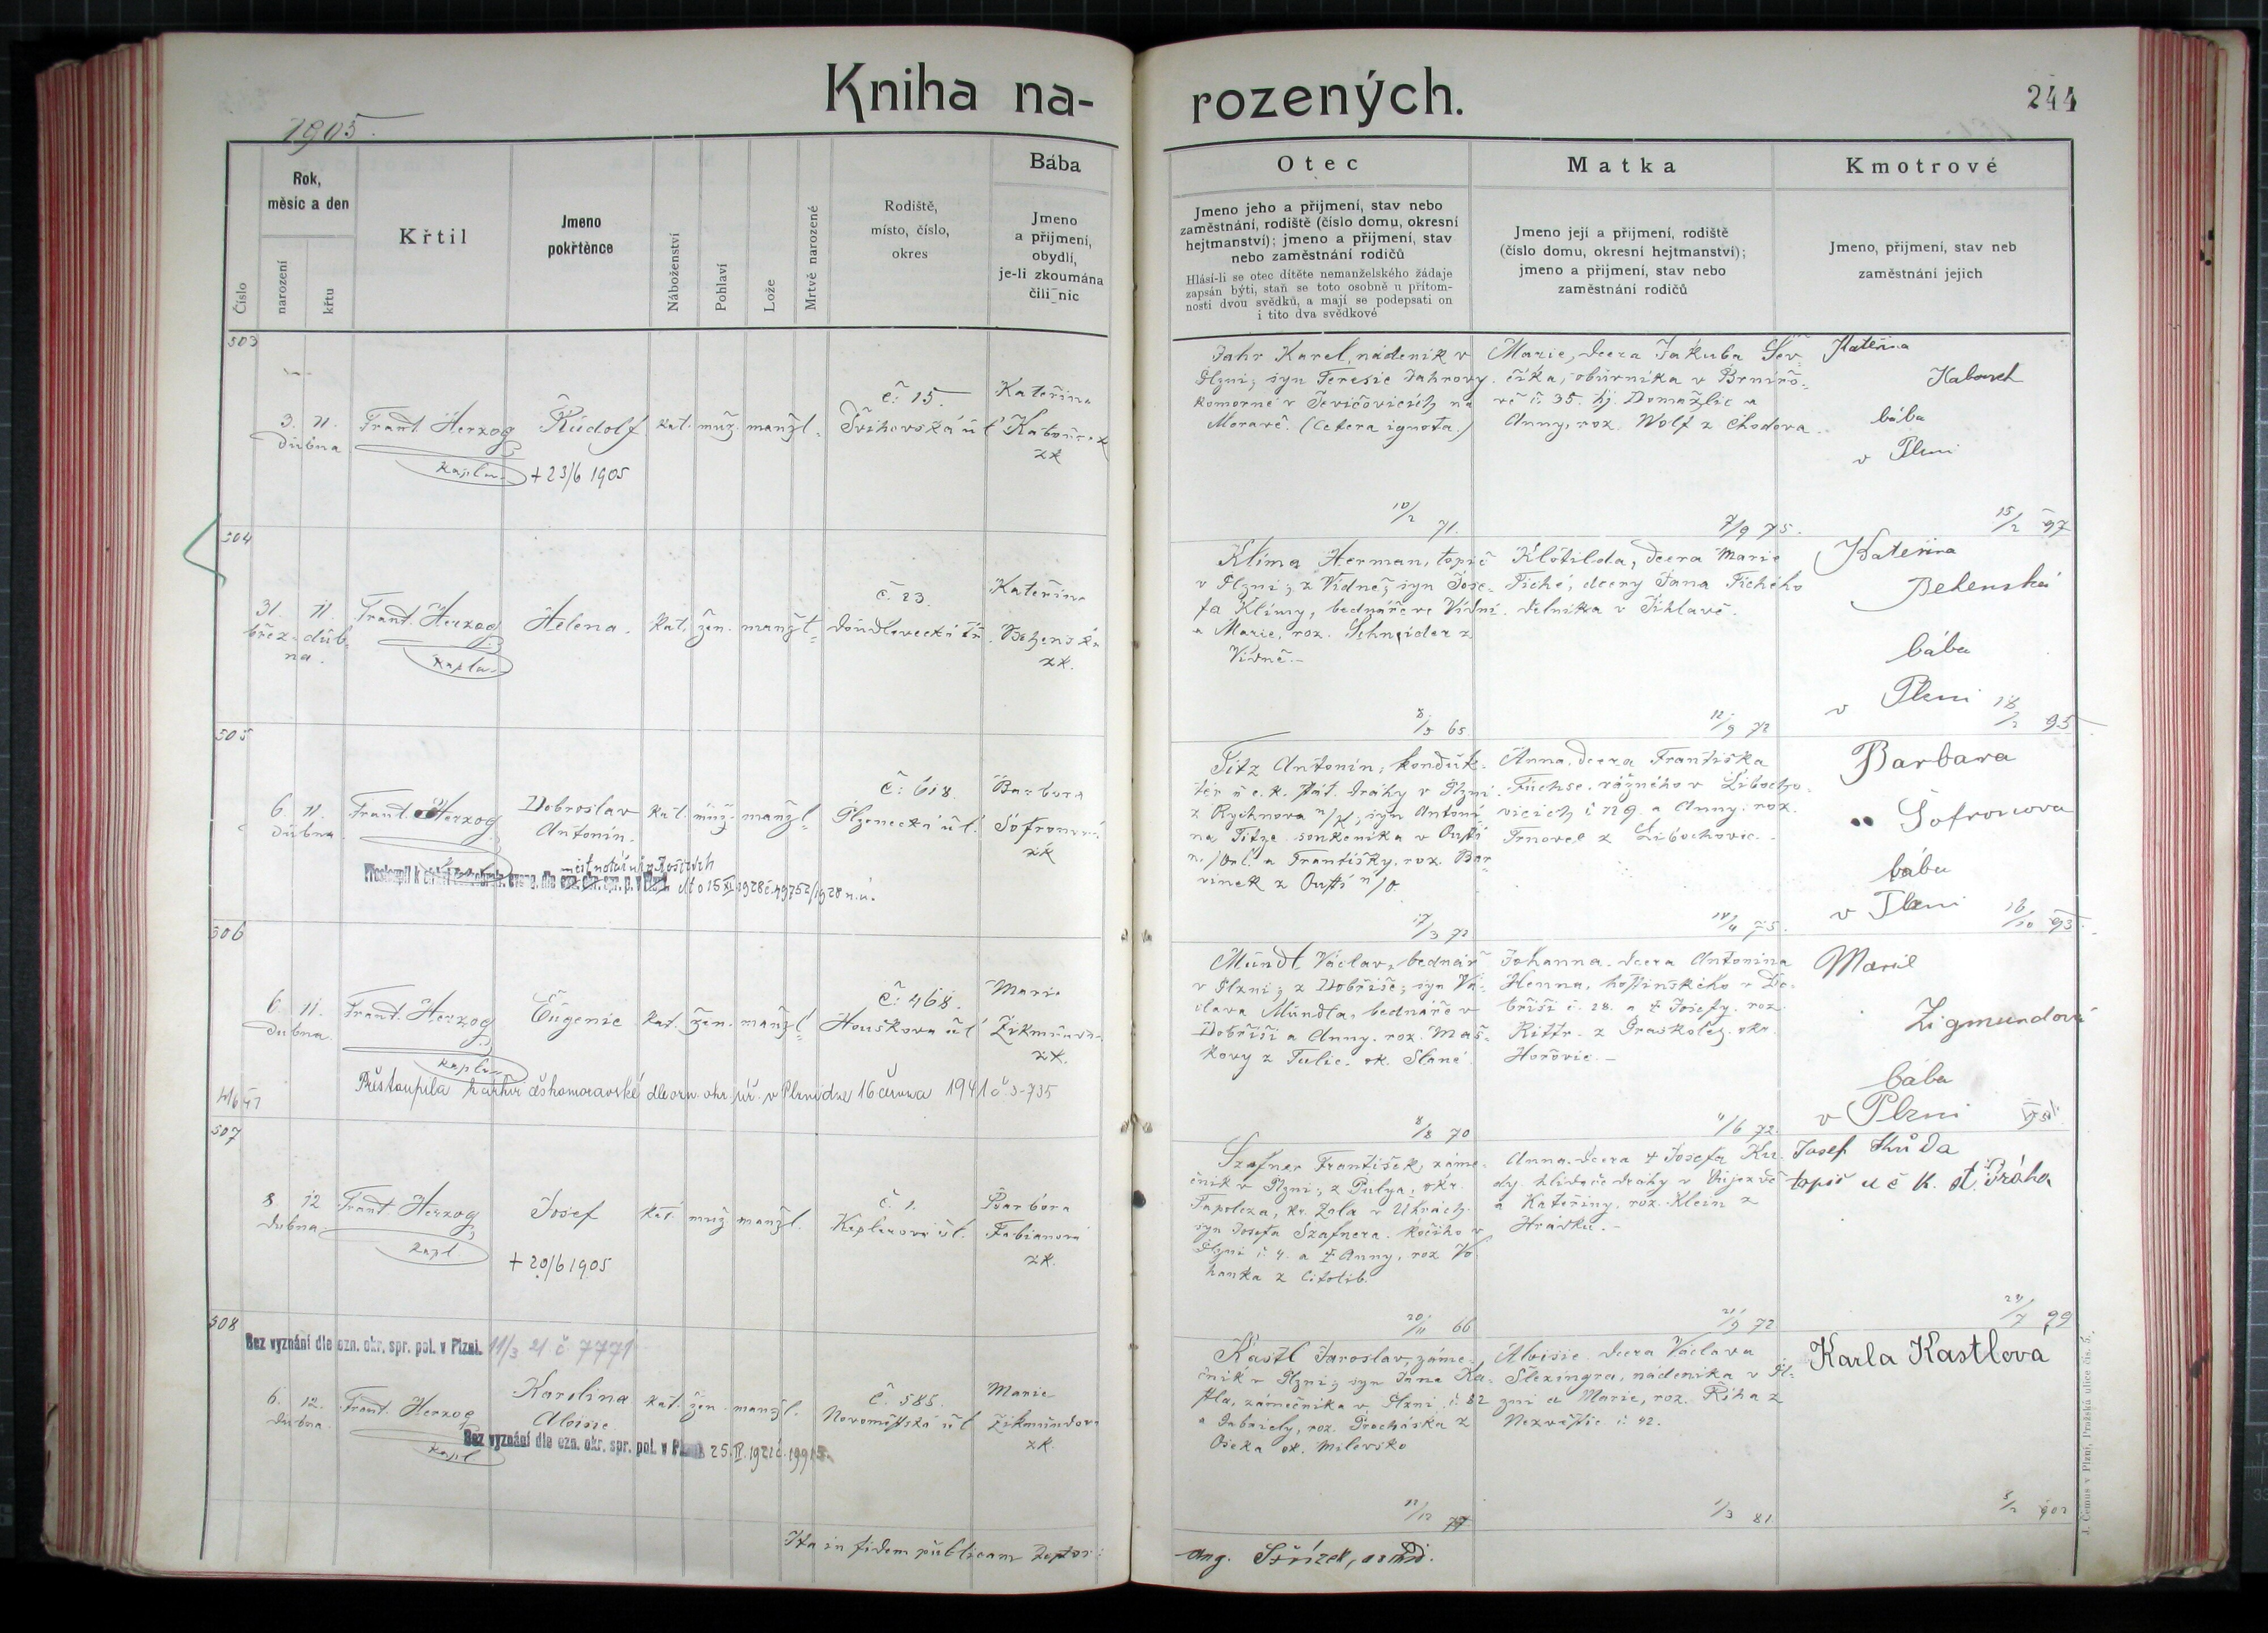 Kniha na-
rozených.
244
1905.
Číslo
Rok,
měsíc a den
narození
křtu
Křtil
Jmeno
pokřtěnce
Náboženství
Pohlaví
Lože
Mrtvě narozené
Rodiště,
místo, číslo,
okres
Bába
Jmeno
a přijmení,
obydlí,
je-li zkoumána
čili nic
Otec
Jmeno jeho a přijmení, stav nebo
zaměstnání, rodiště (číslo domu, okresní
hejtmanství); jmeno a přijmení, stav
nebo zaměstnání rodičů
Hlásí-li se otec dítěte nemanželského žádaje
zapsán býti, staň se toto osobně u přítom-
nosti dvou svědků, a mají se podepsati on
i tito dva svědkové
Matka
Jmeno její a přijmení, rodiště
(číslo domu, okresní hejtmanství);
jmeno a přijmení, stav nebo
zaměstnání rodičů
Kmotrové
Jmeno, přijmení, stav neb
zaměstnání jejich
503
3. 11.
dubna
Frant. Herzog
kaplan
Rudolf
+ 23/6 1905
kat. muž. manžl.
č. 15
Švihovská ul.
Kateřina
zk
Jahr Karel, nádeník v
Plzni, syn Teresie Jahrovy
komorné v Jevičovicích na
Moravě. (Cetera ignota.)
10/2 71.
Marie, dcera Jakuba Šev-
číka, obuvníka v Brnířo-
vě č. 35. hj. Domažlic a
Anny, roz. Wolf z Chodova.
7/9 75.
Kateřina
bába
v Plzni
15/2 97
504
31. 11.
břez- dub-
na.
Frant. Herzog
kaplan
Helena.
kat. žen. manžl.
č. 23.
Doudlevecká tř.
Kateřina
zk.
Klíma Herman, topič
v Plzni; z Vídně, syn Jose-
fa Klímy, bednáře ve Vídni
a Marie, roz. Schneider z
Vídně.-
8/5 65
Klotilda, dcera Marie
Tiché, dcery Jana Tichého
dělníka v Jihlavě.
12/9 72
Kateřina
bába
v Plzni
18/2 95
505
6. 11.
dubna
Frant. Herzog
Dobroslav
Antonín.
kat. muž. manžl.
č. 618
Plzenecká ul.
Barbora
Šofronová
zk
Titz Antonín, konduk-
tér u c. k. stát. dráhy v Plzni
z Rychnova n/K, syn Antoní-
na Titze, soukeníka v Oustí
n./Orl. a Františky, roz. Bar-
vínek z Oustí n/O.
17/3 72
Anna, dcera Františka
Fuchse, rážného v Libocho-
vicích č. 129. a Anny, roz.
Trnovec z Libochovic.
14/4 75.
Barbara
Šofronova
bába
v Plzni
18/10 93.
506
6. 11.
dubna.
Frant. Herzog
kaplan
Eugenie
kat. žen. manžl.
č. 468.
Houškova ul.
Marie
zk.
Přestoupila k církvi českomoravské dle ozn. okr. úř. v Plzni dne 16 června 1941 č. 3-735
Mundl Václav, bednář
v Plzni; z Dobříše; syn Vá-
clava Mundla, bednáře v
Dobříši a Anny, roz. Maš-
kovy z Tulic. ok. Slané.
8/8 70
Johanna, dcera Antonína
Henna, hostinského v Do-
bříši č. 28. a + Josefy, roz.
Rittr. z Praskoles. okr.
Hořovic.-
11/6 72.
Marie
Zigmundová
bába
v Plzni
507
8. 12
dubna.
Frant. Herzog
kapl
Josef
+ 20/6 1905
kat. muž. manžl.
č. 1.
Keplerova ul.
Barbora
Fabianová
zk.
Szafner František, záme-
čník v Plzni; z Pulya; okr.
Tapolcza, kr. Zala v Uhrách.
syn Josefa Szafnera, kočího v
Plzni č. 4. a + Anny, roz. Vo-
hanka z Citolib.
20/11 66
Anna, dcera + Josefa Ku-
dy, hlídače dráhy v Újezdě
a Kateřiny, roz. Klein z
Hrádku.-
21/9 72
Josef Kůda
topič u č K. st. dráha
24/7 99
508
Bez vyznání dle ozn. okr. spr. pol. v Plzni. 11/3 21 č 7771
6. 12.
dubna.
Frant. Herzog
kapl
Karolina
Aloisie
kat. žen. manžl.
č. 585.
Novoměstská ul.
Marie
Zikmundova
zk.
Bez vyznání dle ozn. okr. spr. pol. v Plzni 25. II. 1921 č. 1991
Kastl Jaroslav, záme-
čník v Plzni, syn Jana Ka-
stla, zámečníka v Plzni č. 82
a Gabriely, roz. Procháska z
Oseka ok. Milevsko
11/12 77
Aloisie dcera Václava
Šlezingra, nádeníka v Pl-
zni a Marie, roz. Říha z
Nezvěstic č. 42.
1/3 81
Karla Kastlová
8/2 902
Ita in fidem publicam
J. Černus v Plzni, Pražská ulice čís. 5.